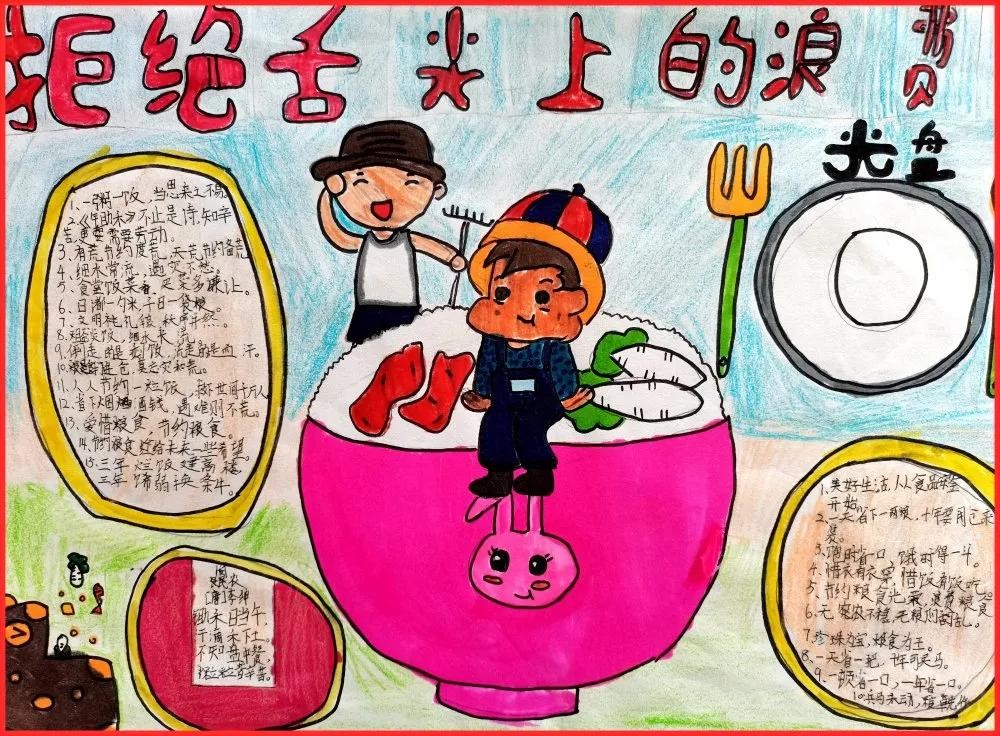 拒绝舌尖上的浪费
光盘
1、一粥一饭，当思来之不易
2、《锄禾》不止是诗，知辛
苦，更要需要劳动。
3、有荒节约度荒，无荒节约备荒
4、细水常流，遇灾不愁。
5、食堂饭菜香，
6、日渐一勺米，千日一袋粮。
7、文明
8、粗茶淡饭，细水长流
9、倒走的是剩饭，流走的是血汗。
10、
11、人人节约一粒饭，救济世间千万人
12、省下烟酒钱，遇难则不荒。
13、爱惜粮食，节约粮食。
14、节约粮食
15、三年烂饭建高楼
三年稀弱换条牛。
悯农
[唐]李绅
锄禾日当午，
汗滴禾下土。
不知盘中餐，
粒粒皆辛苦。
1、美好生活，从食品安全
开始。
2、一天省下一两粮，十年要用
3、饱时省一口，饿时得一斗。
4、惜衣有衣穿，惜饭有饭吃
5、节约粮食光荣，浪费粮食
6、无农不稳，无粮则乱。
7、珍珠为宝，粮食为王。
8、一天省一把，十年买马。
9、一顿省一口，一年省一
10、兵马未动，粮草先行